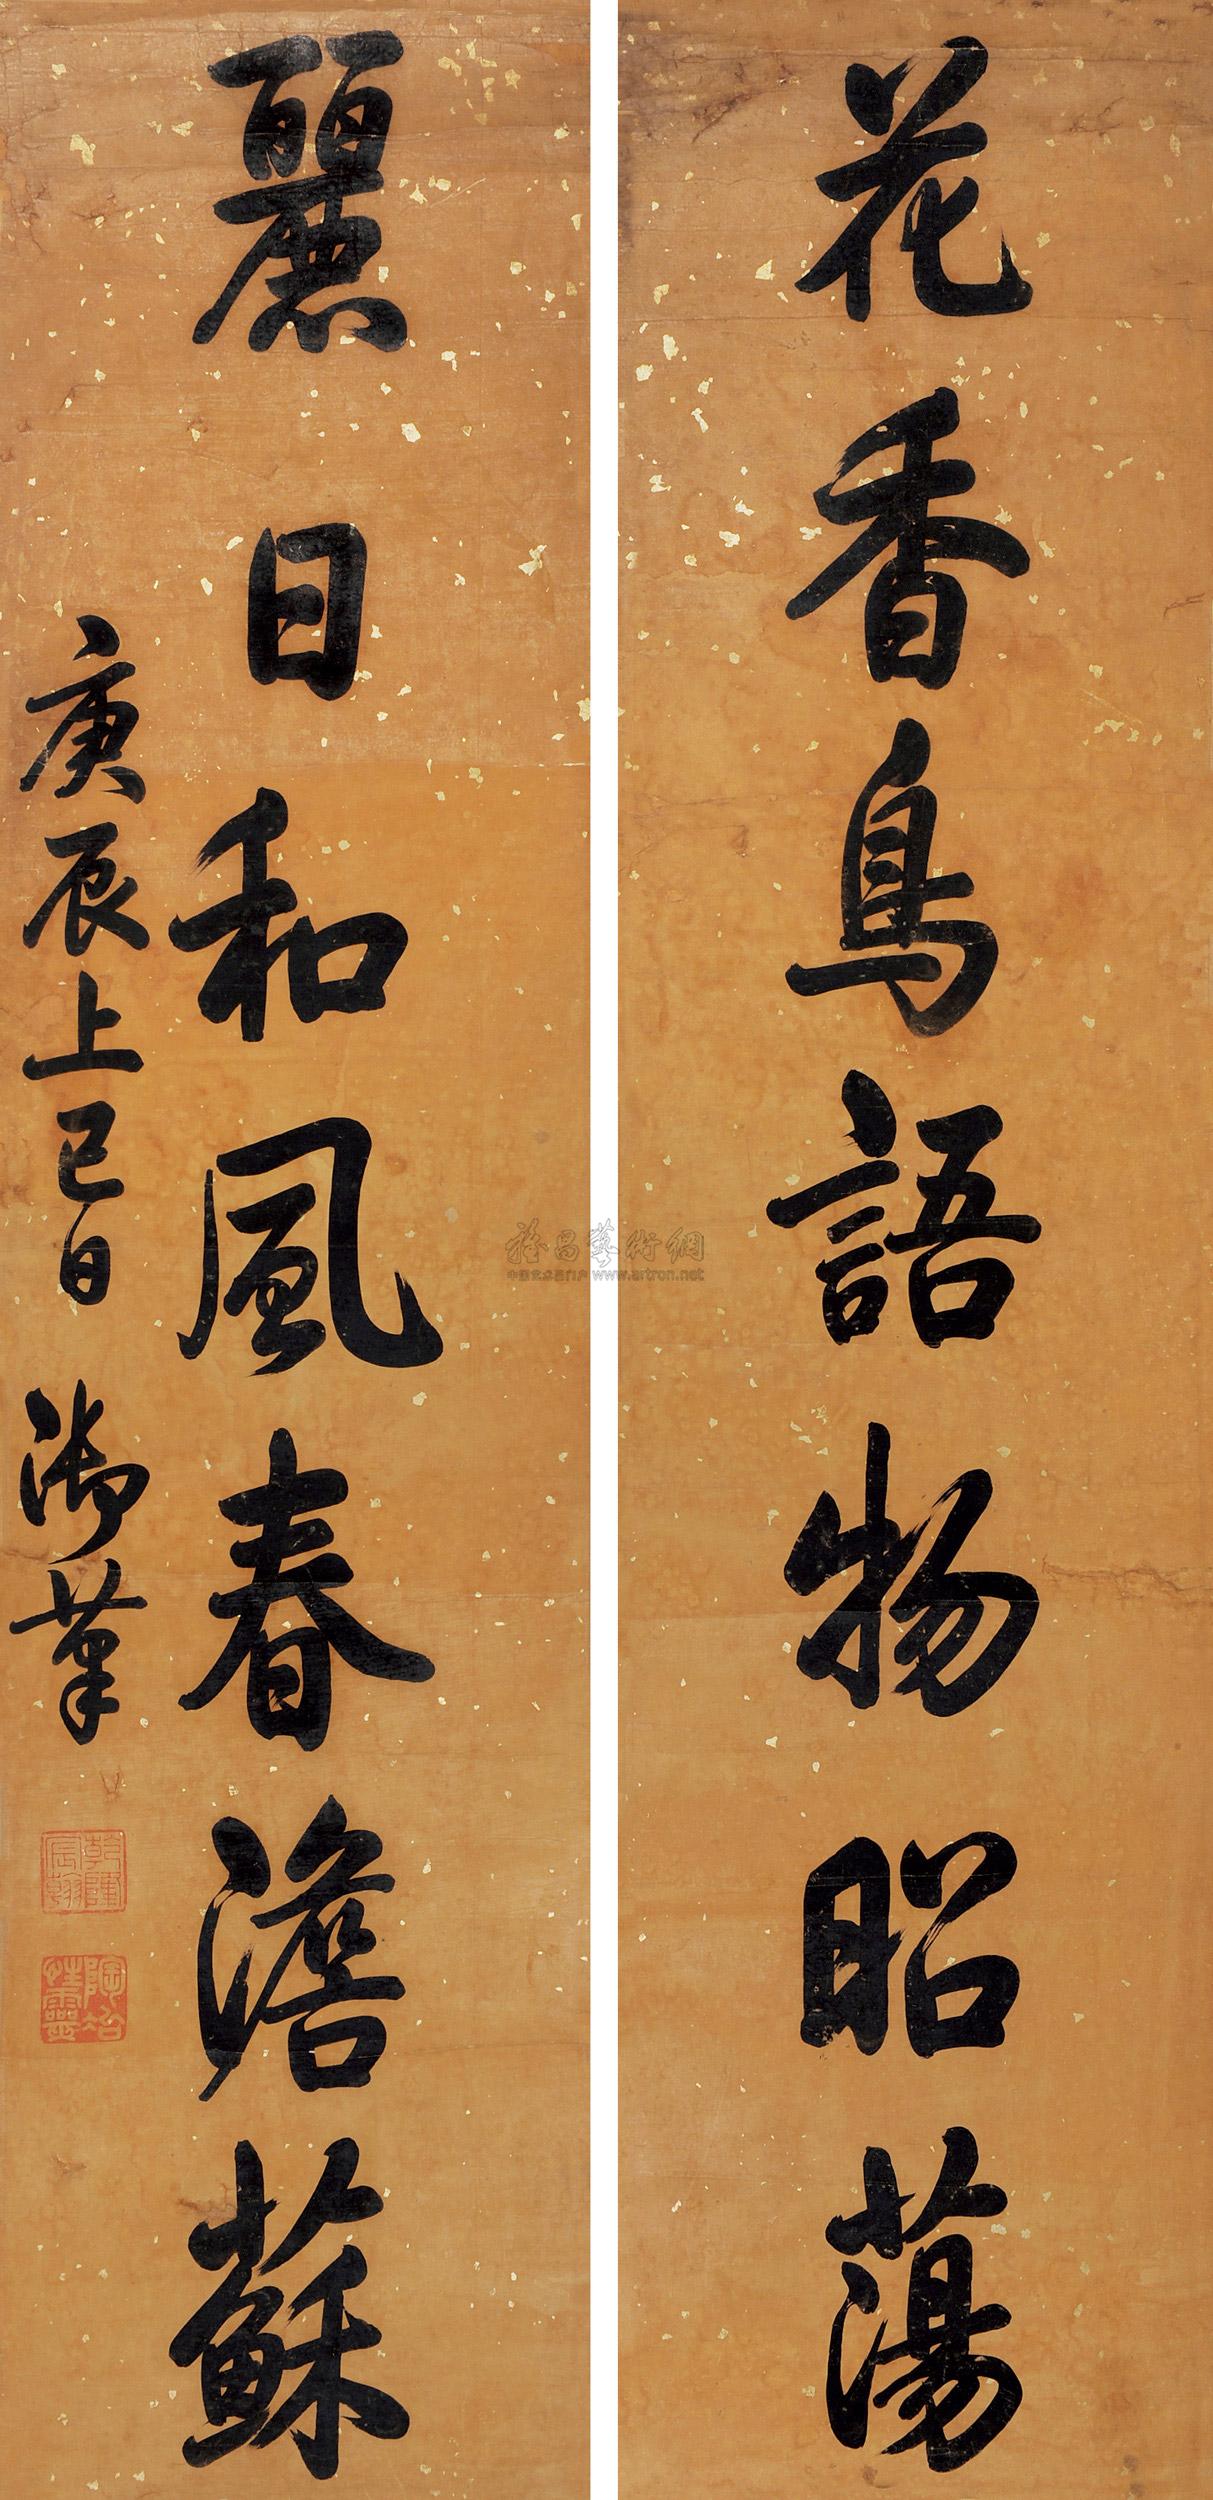 花香鳥語物昭蕩
麗日和風春澹蘇
庚辰上巳日 御筆
乾隆宸翰
陶冶性靈
www.artron.net